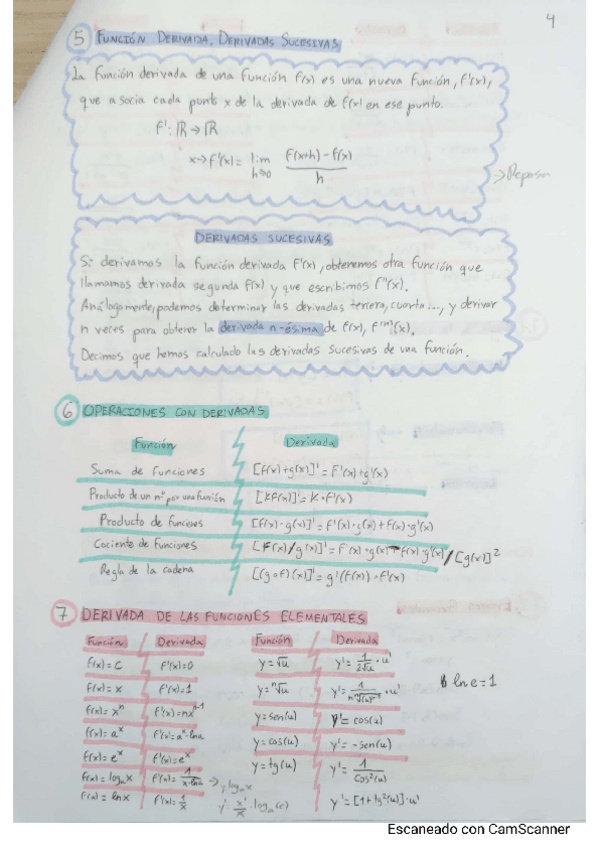 4
5 FUNCIÓN DERIVADA. DERIVADAS SUCESIVAS
La función derivada de una función f(x) es una nueva función, f'(x),
que asocia cada punto x de la derivada de f(x) en ese punto.
f': ℝ → ℝ
x → f'(x) = lim h→0 (f(x+h) - f(x)) / h
→ Repasar
DERIVADAS SUCESIVAS
Si derivamos la función derivada f'(x), obtenemos otra función que
llamamos derivada segunda f(x) y que escribimos f''(x).
Análogamente, podemos determinar las derivadas tercera, cuarta..., y derivar
n veces para obtener la derivada n-ésima de f(x), f⁽ⁿ⁾(x).
Decimos que hemos calculado las derivadas sucesivas de una función.
6 OPERACIONES CON DERIVADAS
Función Derivada
Suma de funciones [f(x)+g(x)]' = f'(x)+g'(x)
Producto de un nº por una función [kf(x)]' = k·f'(x)
Producto de funciones [f(x)·g(x)]' = f'(x)·g(x)+f(x)·g'(x)
Cociente de funciones [f(x)/g(x)]' = f'(x)·g(x)-f(x)·g'(x) / [g(x)]²
Regla de la cadena [(g∘f)(x)]' = g'(f(x))·f'(x)
7 DERIVADA DE LAS FUNCIONES ELEMENTALES
Función Derivada Función Derivada
f(x)=C f'(x)=0 y=√u y'=1/(2√u)·u'
f(x)=x f'(x)=1 y=ⁿ√u y'=1/(n ⁿ√(u)ⁿ⁻¹)·u'
ln e=1
f(x)=xⁿ f'(x)=nxⁿ⁻¹ y=sen(u) y'=cos(u)
f(x)=aˣ f'(x)=aˣ·lna y=cos(u) y'=-sen(u)
f(x)=eˣ f'(x)=eˣ y=tg(u) y'=1/cos²(u)
f(x)=logₐx f'(x)=1/(x·lna) → y=logₐx
f(x)=lnx f'(x)=1/x y'=x'/x·logₐ(e) y'=[1+tg²(u)]·u'
Escaneado con CamScanner